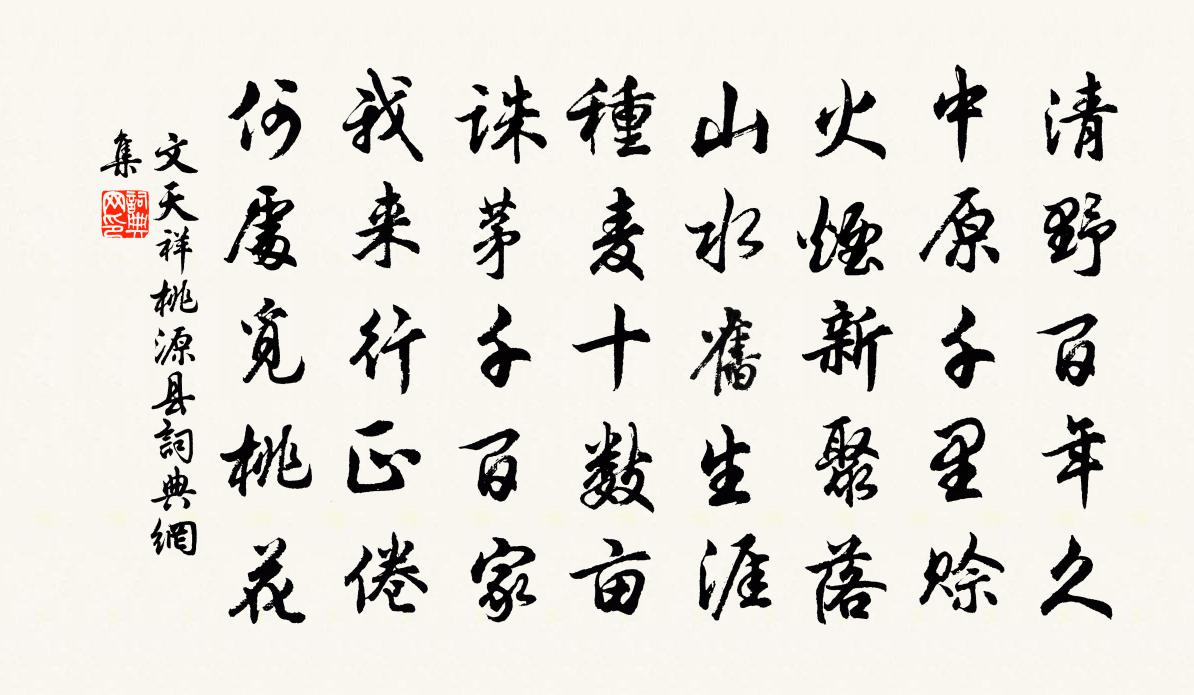 清野百年久
中原千里赊
火煙新聚落
山水舊生涯
種麦十数亩
誅茅千百家
我来行正倦
何處覓桃花
文天祥桃源县詞典網
集
詞典网印